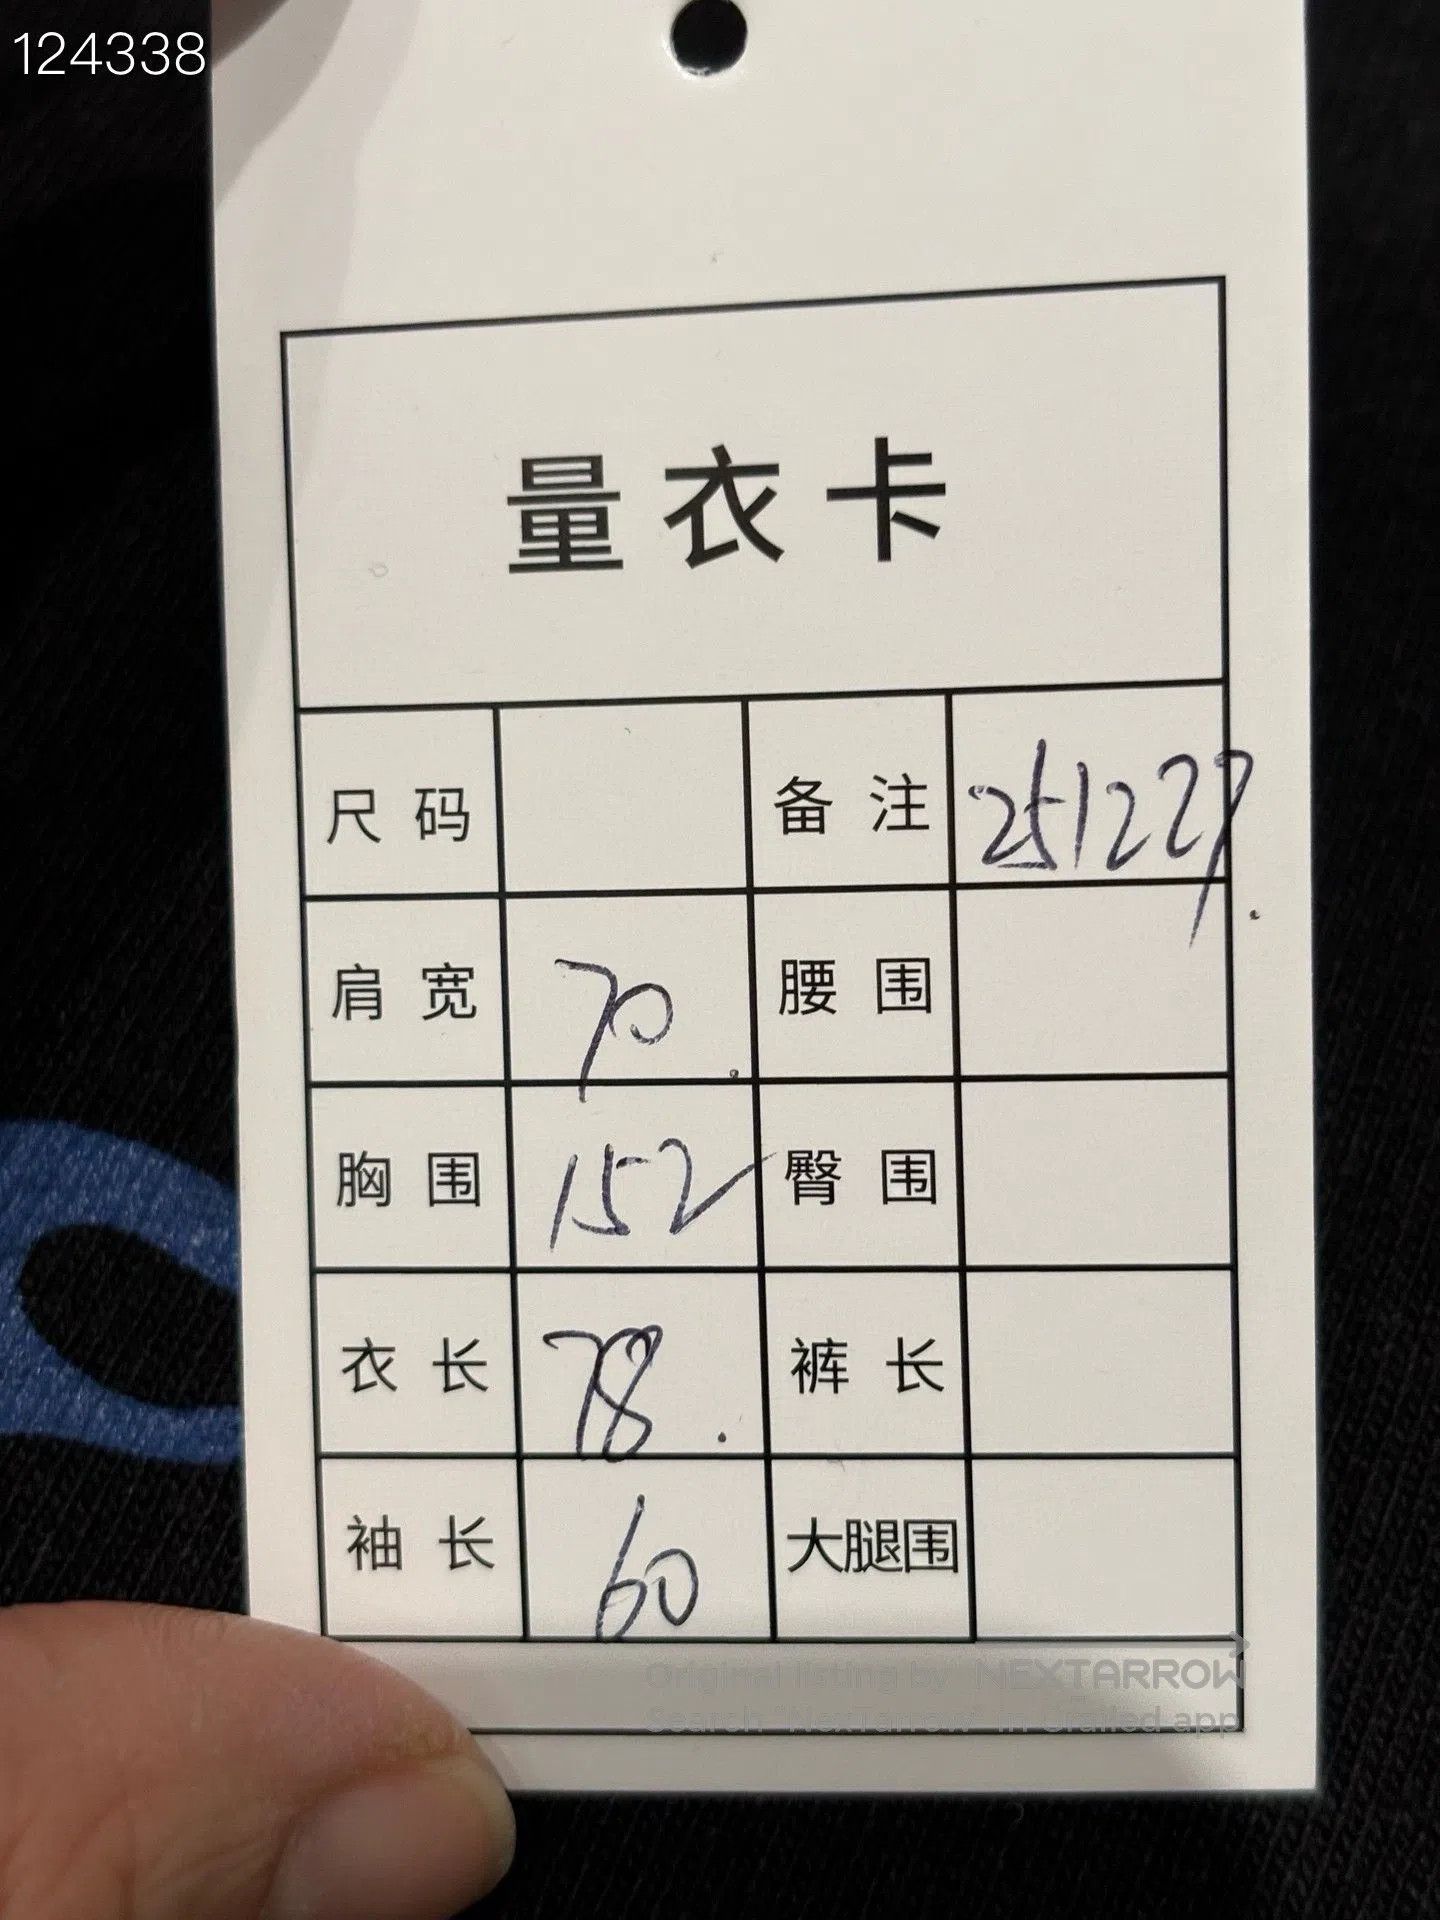 124338
量衣卡
尺码 备注 251227.
肩宽 70. 腰围
胸围 152 臀围
衣长 78. 裤长
袖长 60 大腿围
Original listing by NEXTARROW
Search "NexTarrow" in Grailed app